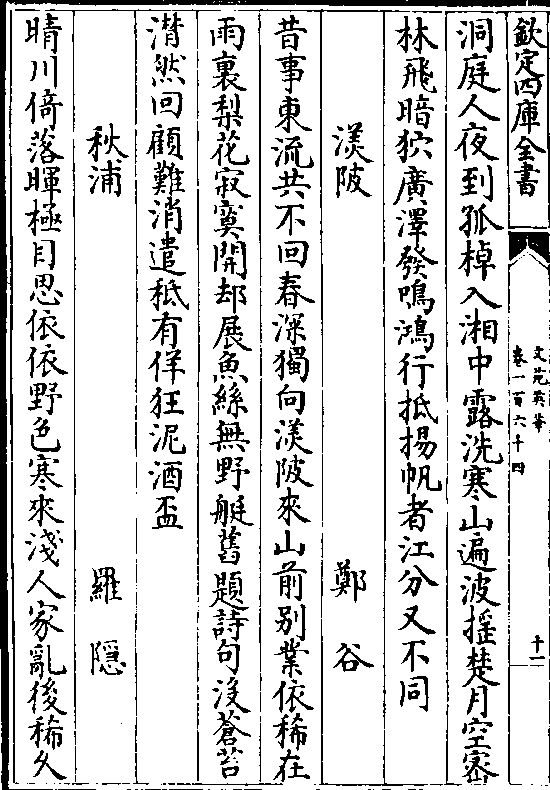 欽定四庫全書
文苑英華
卷一百六十四
十一
洞庭人夜到孤棹入湘中露洗寒山遍波揺楚月空密
林飛暗狖廣澤發鳴鴻行抵揚帆者江分又不同
渼陂
鄭谷
昔事東流共不回春深獨向渼陂來山前别業依稀在
雨裏梨花寂寞開却展魚絲無野艇舊題詩句沒蒼苔
潸然回顧難消遣秪有佯狂泥酒盃
秋浦
羅隠
晴川倚落暉極目思依依野色寒來淺人家亂後稀久